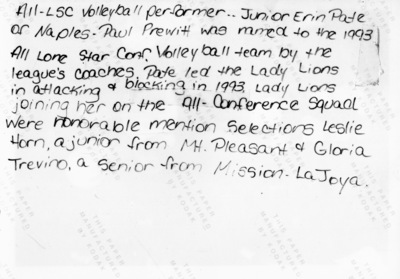 All-LSC Volleyball performer.. Junior Erin Pate
of Naples-Paul Prewitt was named to the 1993
All Lone Star Conf. Volleyball team by the
league's coaches. Pate led the Lady Lions
in attacking & blocking in 1993. Lady Lions
joining her on the All-Conference Squad
were honorable mention selections Leslie
Horn, a junior from Mt. Pleasant & Gloria
Trevino, a senior from Mission-LaJoya.